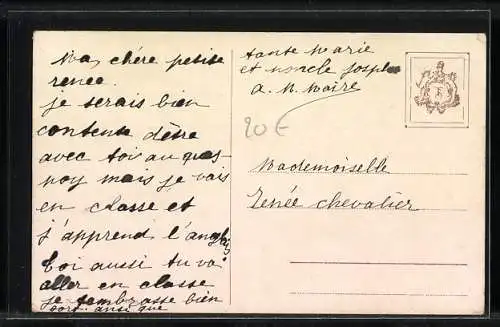 Ma, chère petite
renée.
je serais bien
contente dêtre
avec toi au ques-
noy mais je vais
en classe et
j'apprend l'anglais
toi aussi tu va
aller en classe
je tembrasse bien
fort. ainsi que
tante Marie
et noncle Joseph
a. M. Maire
20 €
Mademoiselle
Renée Chevalier